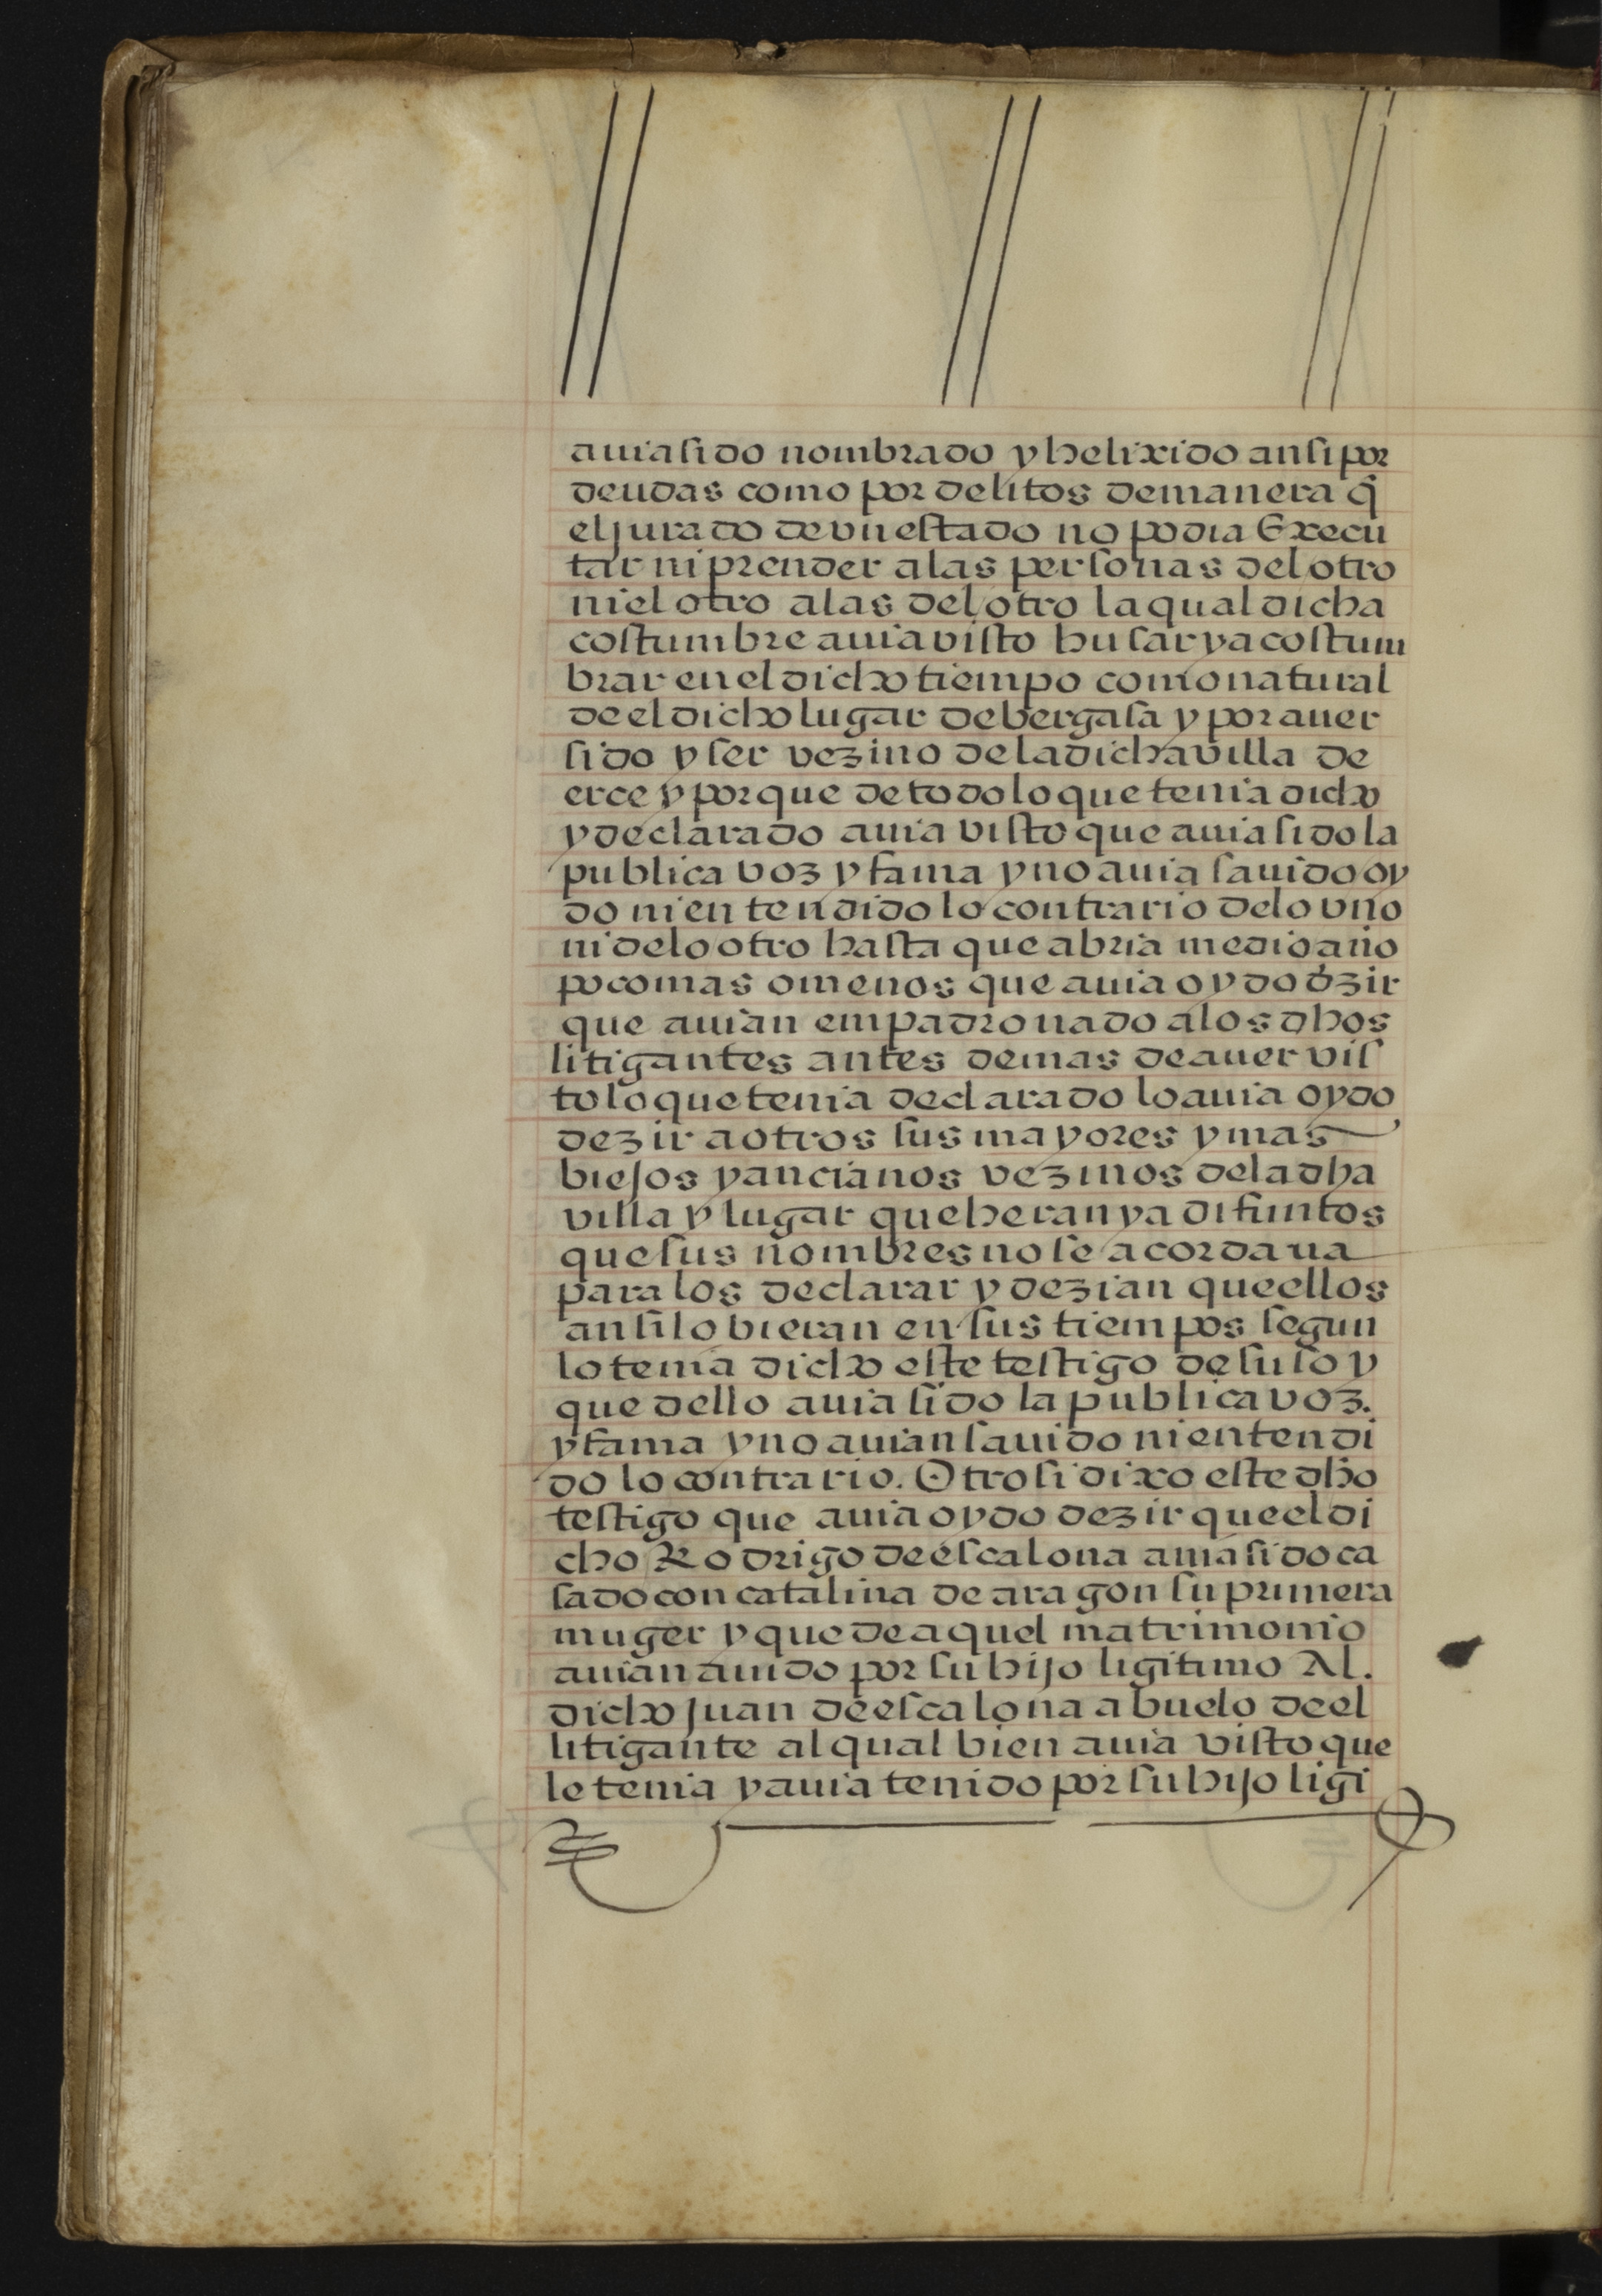 auia sido nombrado y helixido ansi por
deudas como por delitos demanera q̃
el jurado de vn estado no podia Execu
tar ni prender a las personas del otro
ni el otro a las del otro la qual dicha
costumbre auia visto husar y acostum
brar en el dicho tiempo como natural
de el dicho lugar de bergasa y por auer
sido y ser vezino de la dicha villa de
erce y porque de todo lo que tenia dicho
y declarado auia visto que auia sido la
publica voz y fama y no auia sauido oy
do ni entendido lo contrario delo vno
ni delo otro hasta que abria medio año
poco mas o menos que auia oydo dzir
que auian empadronado a los dhos
litigantes antes demas de auer vis
to lo que tenia declarado lo auia oydo
dezir a otros sus mayores y mas
biejos y ancianos vezinos dela dha
villa y lugar que heran ya difuntos
que sus nombres no se acordaua
para los declarar y dezian que ellos
ansi lo bieran en sus tiempos segun
lo tenia dicho este testigo de suso y
que dello auia sido la publica voz.
y fama y no auian sauido ni entendi
do lo contrario. Otrosi dixo este dho
testigo que auia oydo dezir que el di
cho Rodrigo de escalona auia sido ca
sado con catalina de aragon su primera
muger y que de aquel matrimonio
auian auido por su hijo ligitimo Al.
dicho juan de escalona abuelo de el
litigante al qual bien auia visto que
le tenia y auia tenido por su hijo ligi